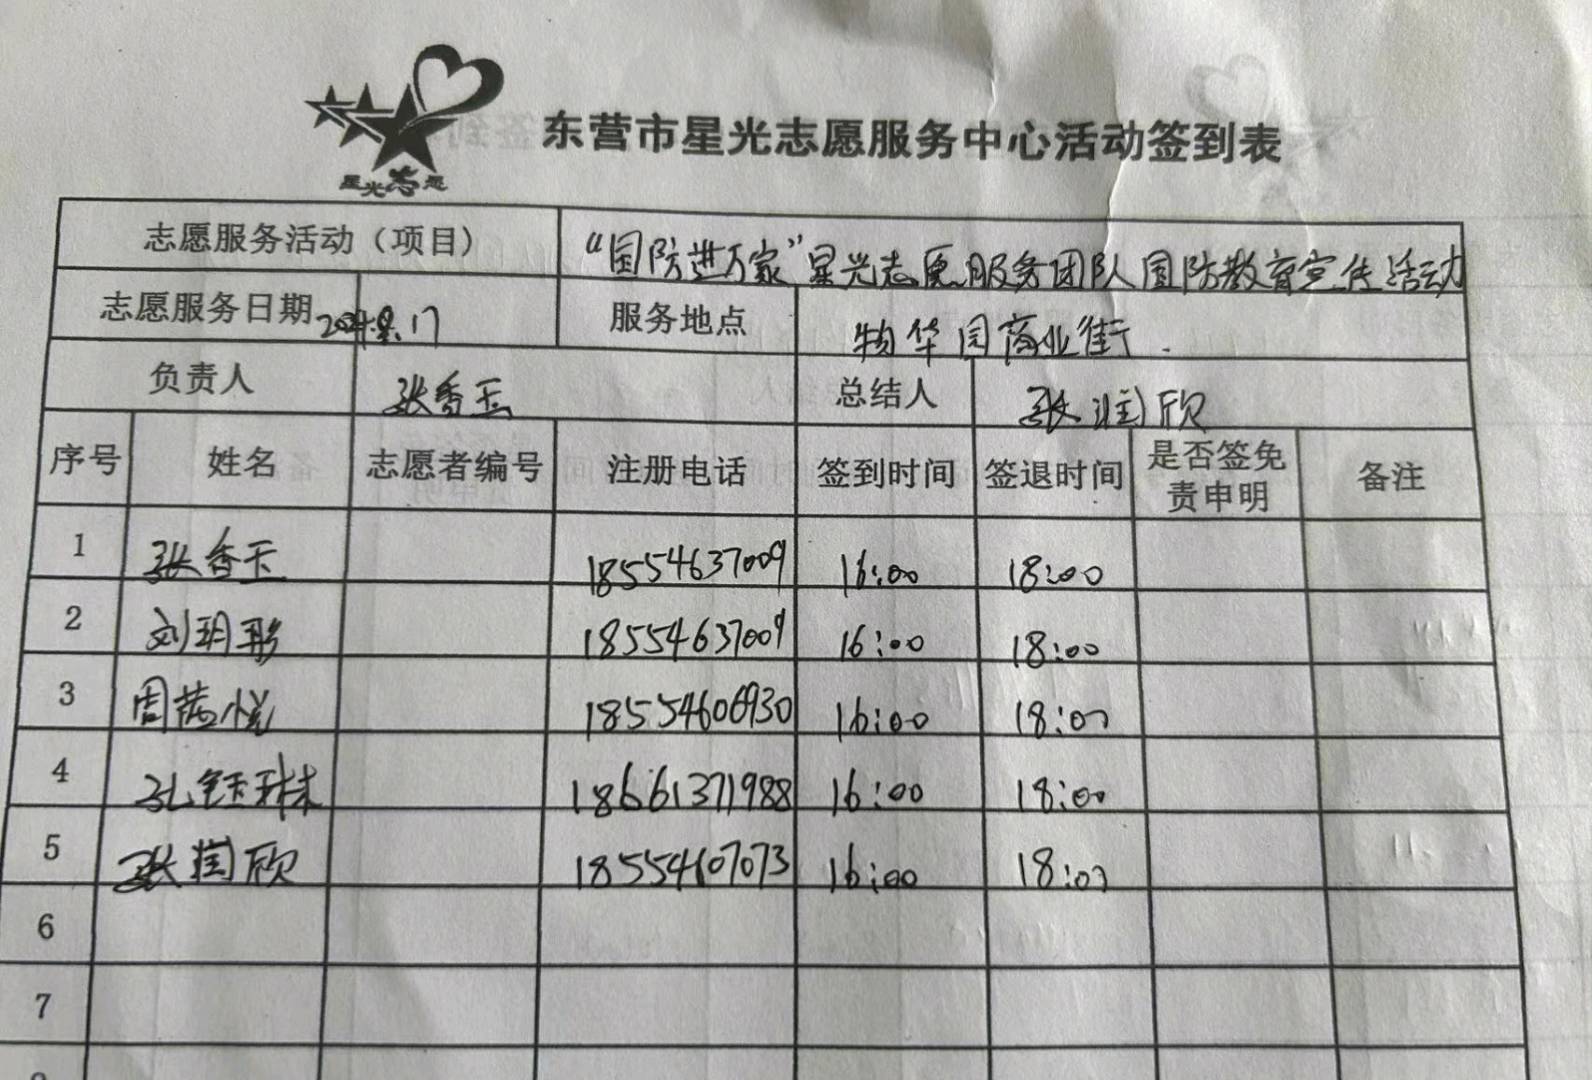 星光志愿
东营市星光志愿服务中心活动签到表
志愿服务活动（项目） “国防进万家”星光志愿服务团队国防教育宣传活动
志愿服务日期 2024.9.17 服务地点 物华园商业街.
负责人 张香玉 总结人 张润欣
序号 姓名 志愿者编号 注册电话 签到时间 签退时间 是否签免责申明 备注
1 张香玉 18554637009 16:00 18:00
2 刘玥彤 18554637009 16:00 18:00
3 周茜悦 18554606930 16:00 18:00
4 孔钰琳 18661371988 16:00 18:00
5 张润欣 18554607073 16:00 18:00
6
7